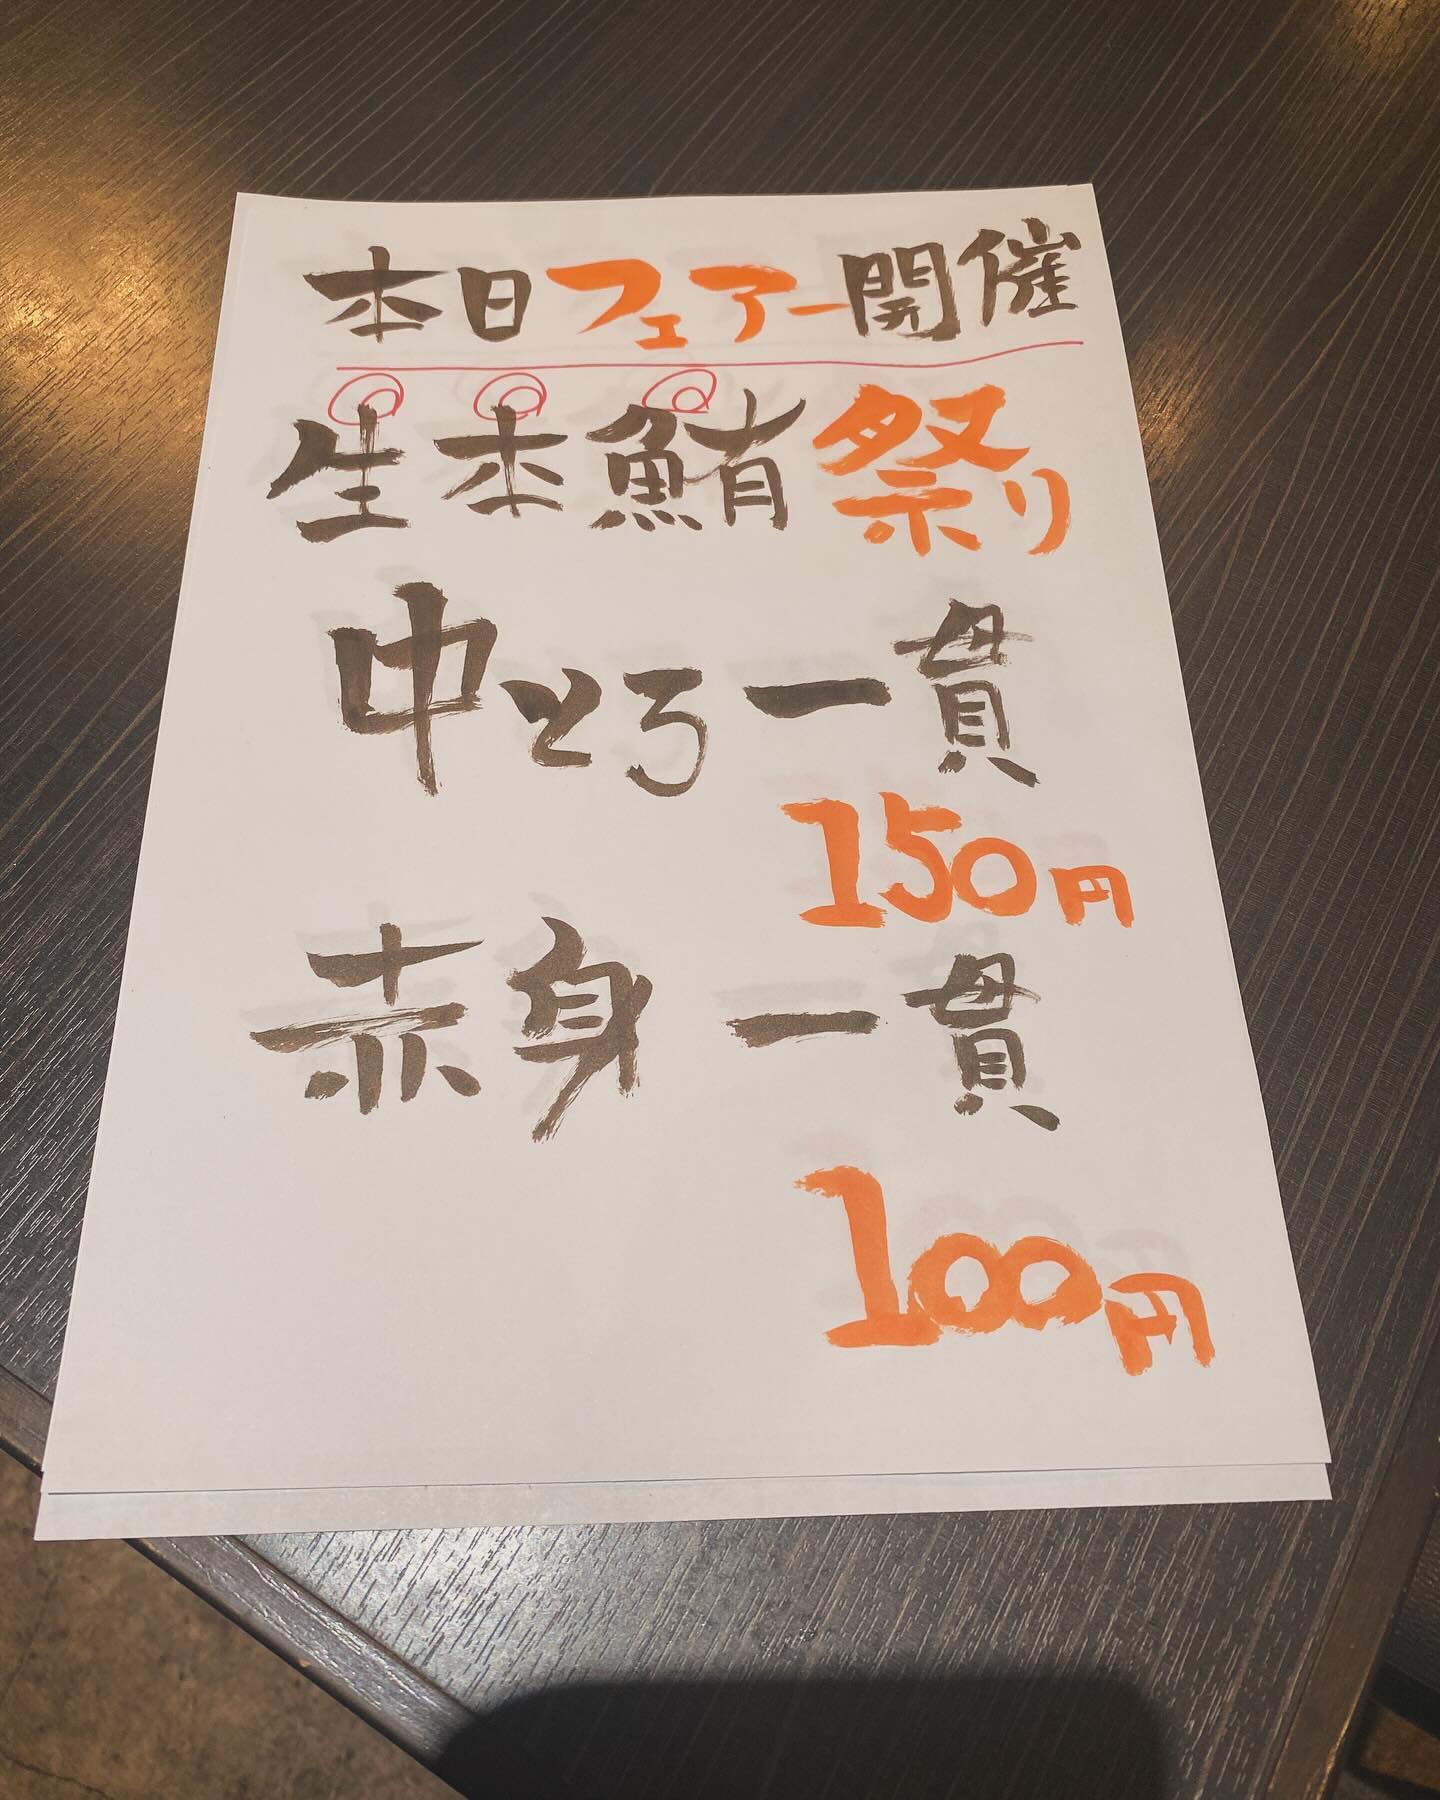 本日フェアー開催
生本鮪祭り
中とろ一貫
150円
赤身 一貫
100円